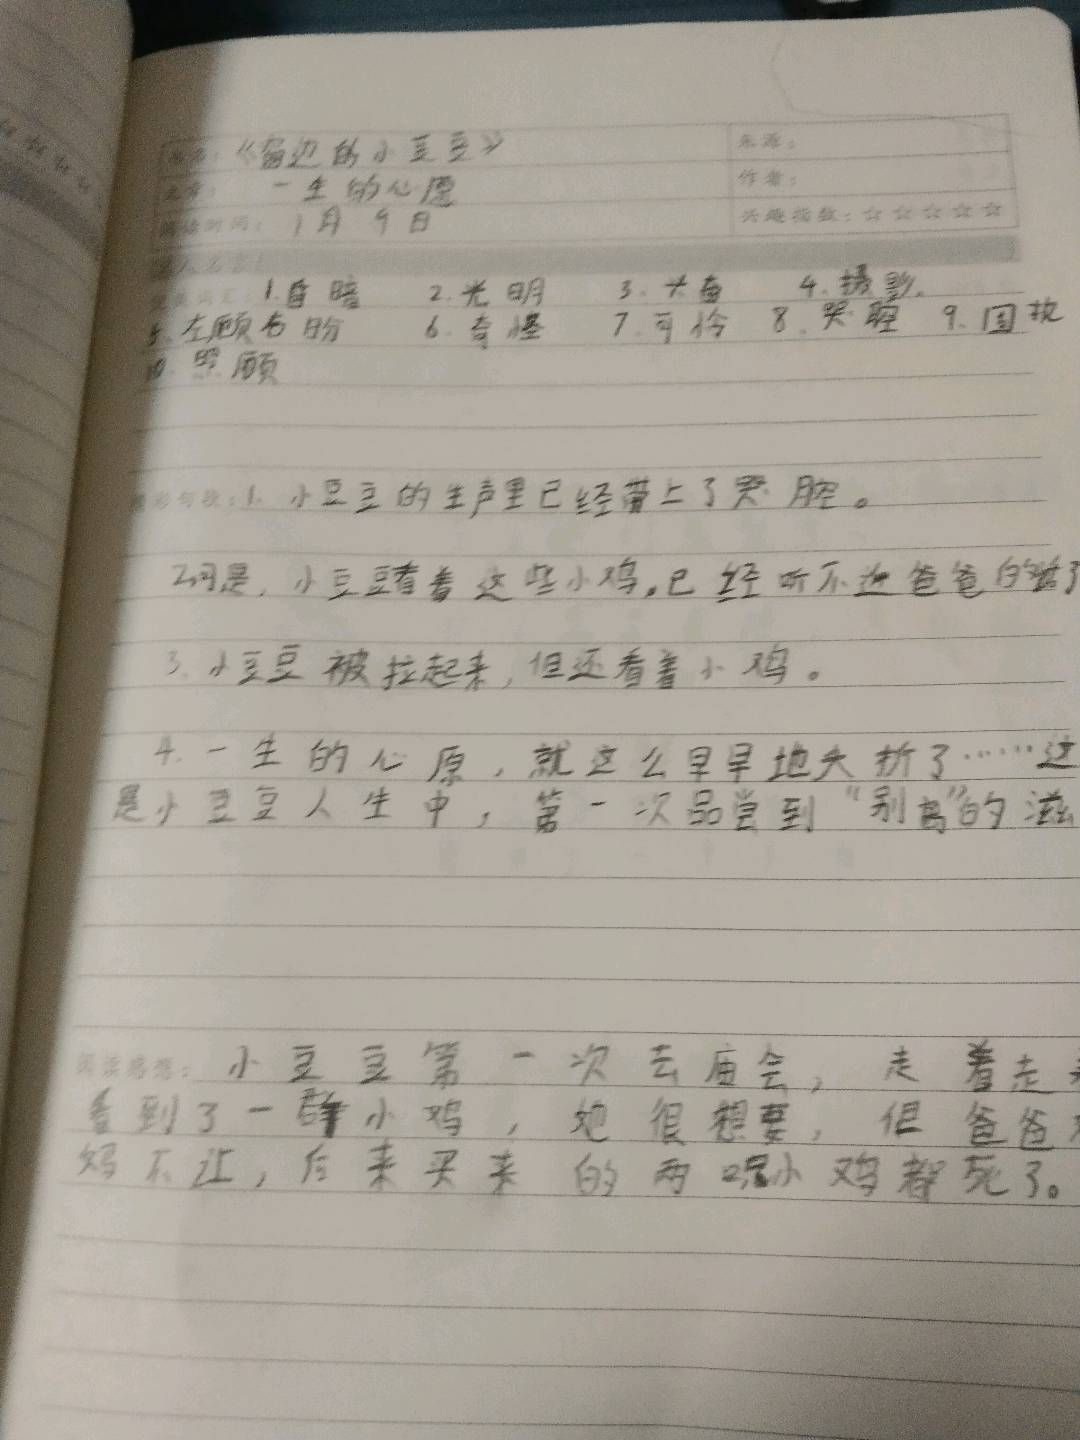 《窗边的小豆豆》 来源：
一生的心愿 作者：
阅读时间：1月9日 兴趣指数：☆☆☆☆☆
名人名言
1.昏暗 2.光明 3. 4.摄影.
5.左顾右盼 6.奇怪 7.可怜 8.哭腔 9.固执
10.照顾
1.小豆豆的生声里已经带上了哭腔。
2.可是，小豆豆看着这些小鸡，已经听不进爸爸的话了
3.小豆豆被拉起来，但还看着小鸡。
4.一生的心原，就这么早早地夭折了……这
是小豆豆人生中，第一次品尝到“别离”的滋
阅读感想：小豆豆第一次去庙会，走着走
看到了一群小鸡，她很想要，但爸爸
妈不让，后来买来的两只小鸡都死了。